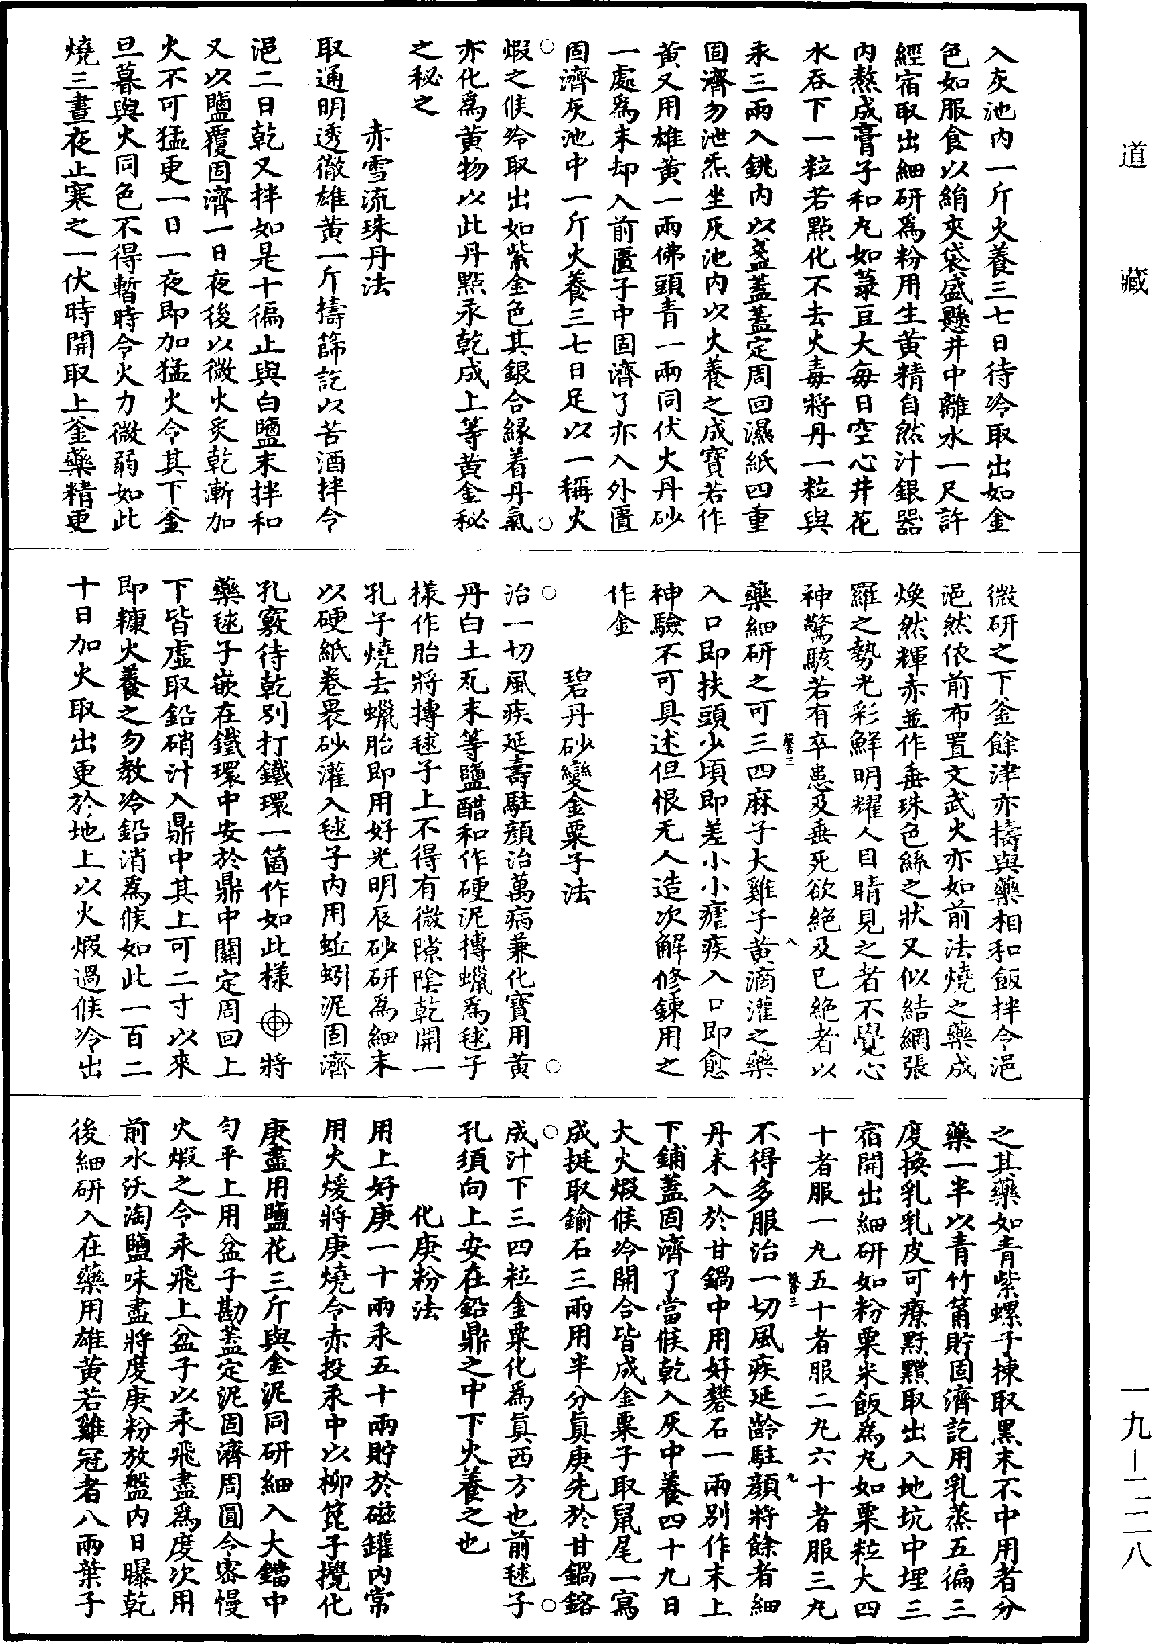 道藏
入灰池内一斤火養三七日待冷取出如金
色如服食以絹夾袋盛懸井中離水一尺許
經宿取出細研為粉用生黄精自然汁銀器
内熬成膏子和丸如菉豆大每日空心井花
水吞下一粒若點化不去火毒將丹一粒與
汞三兩入銚内以盞蓋蓋定周回濕紙四重
固濟勿泄炁坐灰池内以火養之成寶若作
黄又用雄黄一兩佛頭青一兩同伏火丹砂
一處為末却入前匱子中固濟了亦入外匱
固濟灰池中一斤火養三七日足以一稱火
煅之候冷取出如紫金色其銀合緣着丹氣
亦化為黄物以此丹點汞乾成上等黄金秘
之秘之
赤雪流珠丹法
取通明透徹雄黄一斤擣篩訖以苦酒拌令
浥二日乾又拌如是十徧止與白鹽末拌和
又以鹽覆固濟一日夜後以微火炙乾漸加
火不可猛更一日一夜即加猛火令其下釜
旦暮與火同色不得暫時令火力微弱如此
燒三晝夜止寒之一伏時開取上釜藥精更
微研之下釜餘津亦擣與藥相和飯拌令浥
浥然依前布置文武火亦如前法燒之藥成
煥然輝赤並作垂珠色絲之狀又似結網張
羅之勢光彩鮮明耀人目睛見之者不覺心
神驚駭若有卒患及垂死欲絕及已絕者以
藥細研之可三四麻子大雞子黄滴灌之藥
入口即扶頭少頃即差小小瘧疾入口即愈
神驗不可具述但恨无人造次解修鍊用之
作金
碧丹砂變金粟子法
治一切風疾延壽駐顔治萬病兼化寶用黄
丹白土瓦末等鹽醋和作硬泥摶蠟為毬子
樣作胎將摶毬子上不得有微隙陰乾開一
孔子燒去蠟胎即用好光明辰砂研為細末
以硬紙卷裹砂灌入毬子内用蚯蚓泥固濟
孔竅待乾別打鐵環一箇作如此樣將
藥毬子嵌在鐵環中安於鼎中關定周回上
下皆虛取鉛硝汁入鼎中其上可二寸以來
即糠火養之勿教冷鉛消為候如此一百二
十日加火取出更於地上以火煅過候冷出
之其藥如青紫螺子揀取黑末不中用者分
藥一半以青竹筩貯固濟訖用乳蒸五徧三
度換乳乳皮可療䵟䵳取出入地坑中埋三
宿開出細研如粉粟米飯為丸如粟粒大四
十者服一丸五十者服二丸六十者服三丸
不得多服治一切風疾延齡駐顔將餘者細
丹末入於甘鍋中用好礬石一兩別作末上
下鋪蓋固濟了當候乾入灰中養四十九日
大火煅候冷開合皆成金粟子取鼠尾一寫
成挺取鍮石三兩用半分眞庚先於甘鍋鎔
成汁下三四粒金粟化為眞西方也前毬子
孔須向上安在鉛鼎之中下火養之也
化庚粉法
用上好庚一十兩汞五十兩貯於磁罐内常
用火煖將庚燒令赤投汞中以柳篦子攪化
庚盡用鹽花三斤與金泥同研細入大鐺中
勻平上用盆子勘蓋定泥固濟周圓令密慢
火煅之令汞飛上盆子以汞飛盡為度次用
前水沃淘鹽味盡將度庚粉放盤内日曝乾
後細研入在藥用雄黄若雞冠者八兩葉子
一九—二二八